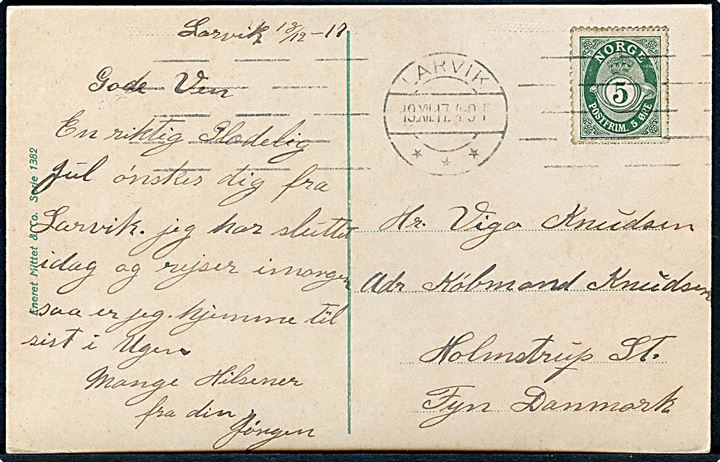 Larvik 19/12-17
Gode Ven
En riktig Glædelig
Jul ønskes dig fra
Larvik. jeg har sluttet
idag og rejser imorgen
saa er jeg hjemme til
sist i Ugen
Mange Hilsener
fra din
Jørgen
Eneret Mittet & Co. Serie 1382
LARVIK
19.XII.17.4-9 F
NORGE
5
POSTFRIM. 5 ØRE
Hr. Vigo Knudsen
Adr Købmand Knudsen
Holmstrup St.
Fyn Danmark